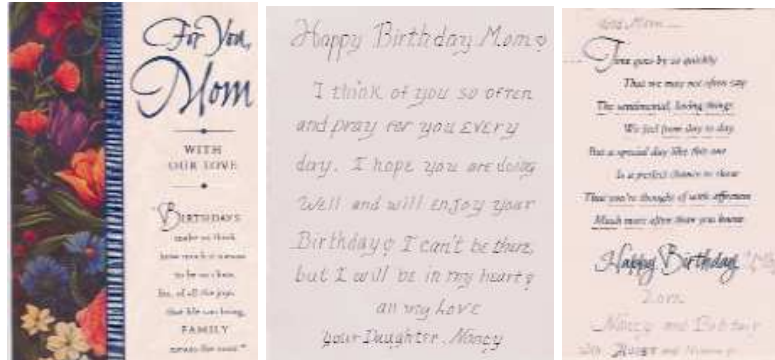 For You,
Mom
WITH
OUR LOVE
BIRTHDAYS
make us think
how much it means
to be so close,
for, of all the joys
that life can bring,
FAMILY
means the most
Happy Birthday Mom
I think of you so often
and pray for you EVERY
day. I hope you are doing
Well and will enjoy your
Birthday I can't be there,
but I will be in my heart
all my Love
your Daughter, Nancy
and Mom
Time goes by so quickly
That we may not often say
The sentimental, loving things
We feel from day to day
But a special day like this one
Is a perfect chance to show
That you're thought of with affection
Much more often than you know
Happy Birthday
Love
Nancy and